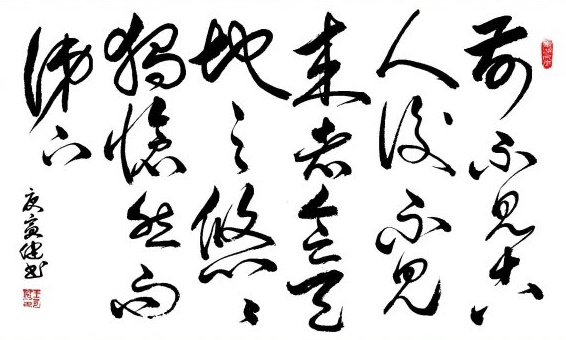 前不見古
人後不見
來者念天
地之悠々
獨愴然而
涕下
庚寅健书